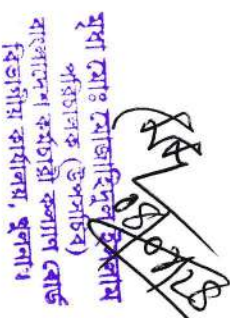 মৃধা মোঃ মোজাহিদুল ইসলাম
পরিচালক (উপসচিব)
বাংলাদেশ কর্মচারী কল্যাণ বোর্ড
বিভাগীয় কার্যালয়, খুলনা।